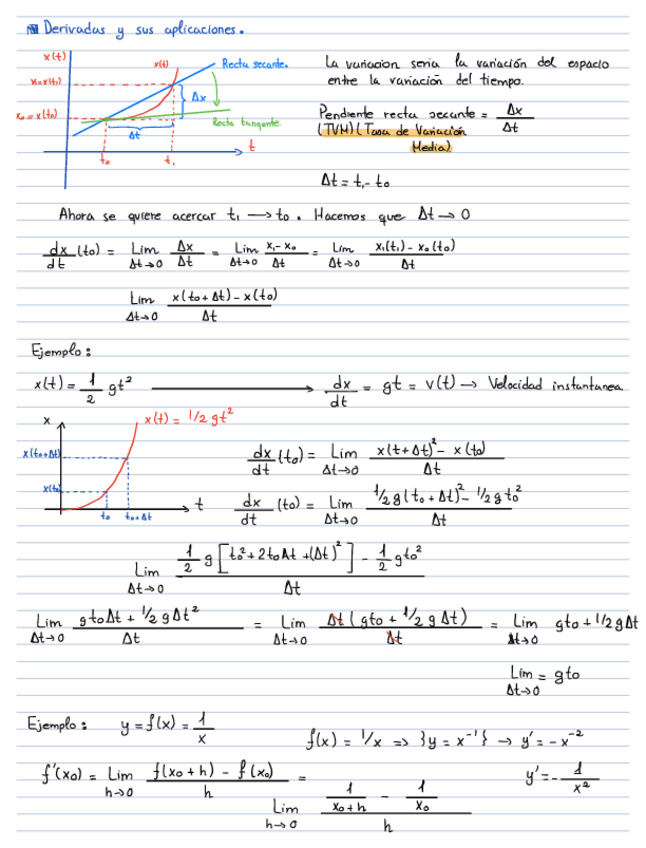 Derivadas y sus aplicaciones.
x(t)
x(t)
Recta secante.
x₁=x(t₁)
Δx
x₀=x(t₀)
Recta tangente
Δt
t
t₀
t₁
La variacion seria la variación del espacio
entre la variación del tiempo.
Pendiente recta secante = Δx/Δt
(TVM)(Tasa de Variación
Media)
Δt = t₁ - t₀
Ahora se quiere acercar t₁ → t₀. Hacemos que Δt → 0
dx/dt (t₀) = Lim Δt→0 Δx/Δt = Lim Δt→0 x₁-x₀/Δt = Lim Δt→0 x₁(t₁) - x₀(t₀)/Δt
Lim Δt→0 x(t₀+Δt) - x(t₀)/Δt
Ejemplo:
x(t) = 1/2 gt² → dx/dt = gt = v(t) → Velocidad instantanea
x
x(t) = 1/2 gt²
x(t₀+Δt)
x(t₀)
t
t₀
t₀+Δt
dx/dt (t₀) = Lim Δt→0 x(t+Δt)² - x(t₀)/Δt
dx/dt (t₀) = Lim Δt→0 1/2 g(t₀+Δt)² - 1/2 gt₀²/Δt
Lim Δt→0 1/2 g [t₀² + 2t₀Δt + (Δt)²] - 1/2 gt₀²/Δt
Lim Δt→0 gt₀Δt + 1/2 gΔt²/Δt = Lim Δt→0 Δt (gt₀ + 1/2 g Δt)/Δt = Lim Δt→0 gt₀ + 1/2 gΔt
Lim Δt→0 = gt₀
Ejemplo: y = f(x) = 1/x
f(x) = 1/x => {y = x⁻¹} → y' = -x⁻²
f'(x₀) = Lim h→0 f(x₀+h) - f(x₀)/h =
y' = - 1/x²
Lim h→0 1/x₀+h - 1/x₀/h